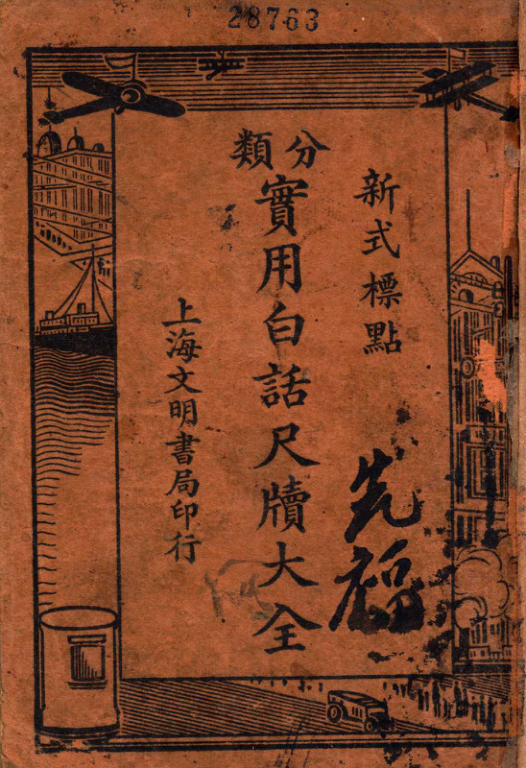 28763
新式標點
分類
實用白話尺牘大全
上海文明書局印行
先福